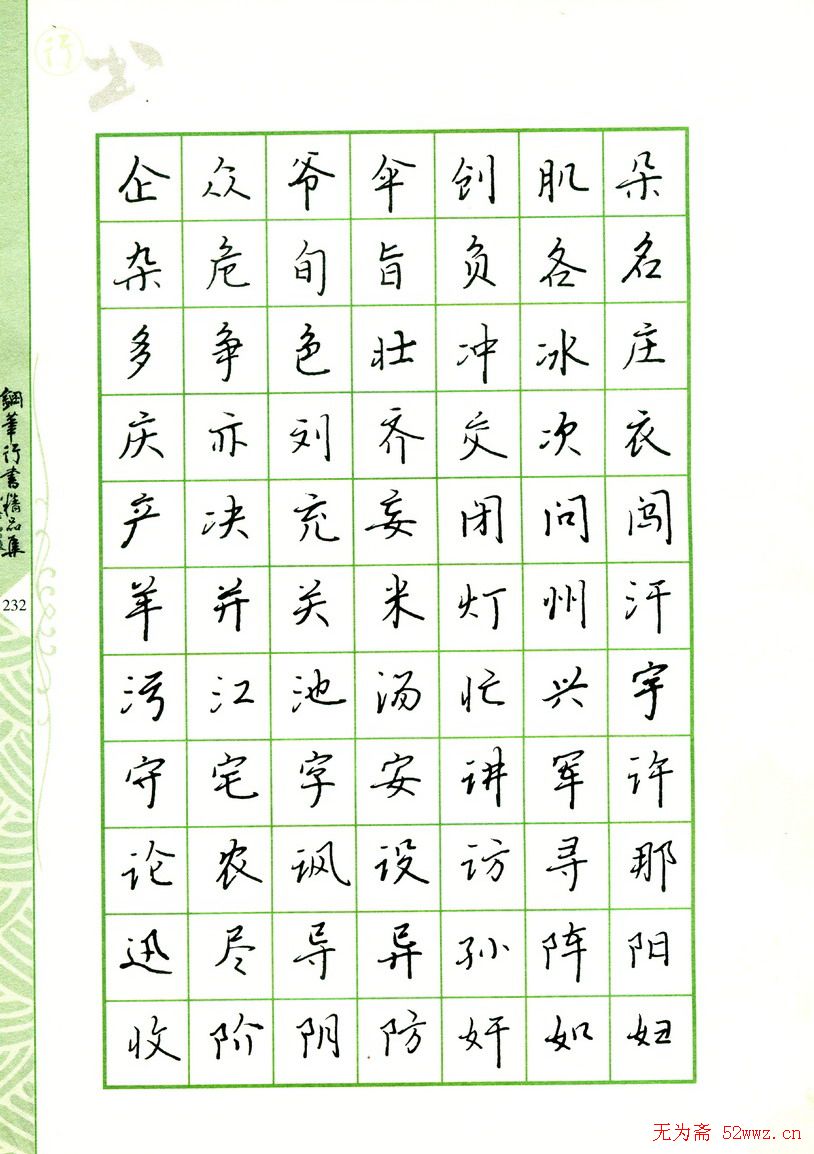 行书
企众爷伞创肌朵
杂危旬旨负各名
多争色壮冲冰庄
庆亦刘齐交次衣
产决充妄闭问闯
羊并关米灯州汗
污江池汤忙兴宇
守宅字安讲军许
论农讽设访寻那
迅尽导异孙阵阳
收阶阴防奸如妇
行书精品集
232
无为斋 52wwz.cn